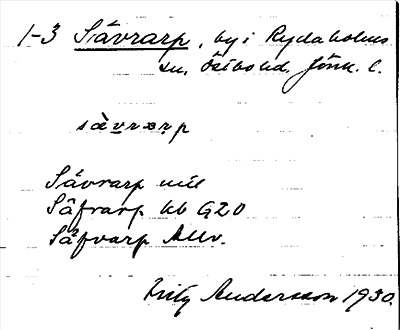 1-3 Sävrarp, by i Rydaholms
sn, Östbo hd. Jönk. l.
sàvrarp
Sävrarp utt
Säfrarp kb G20
Säfvarp Allv.
Fritz Andersson 1930.